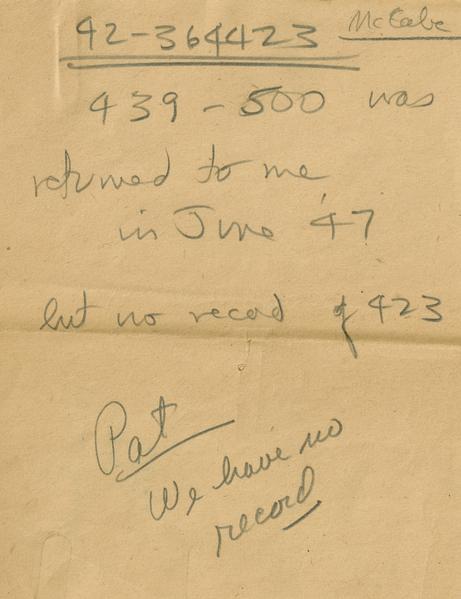 McCabe
42-364423
439-500 was
returned to me
in June '47
but no record of 423
Pat
We have no
record